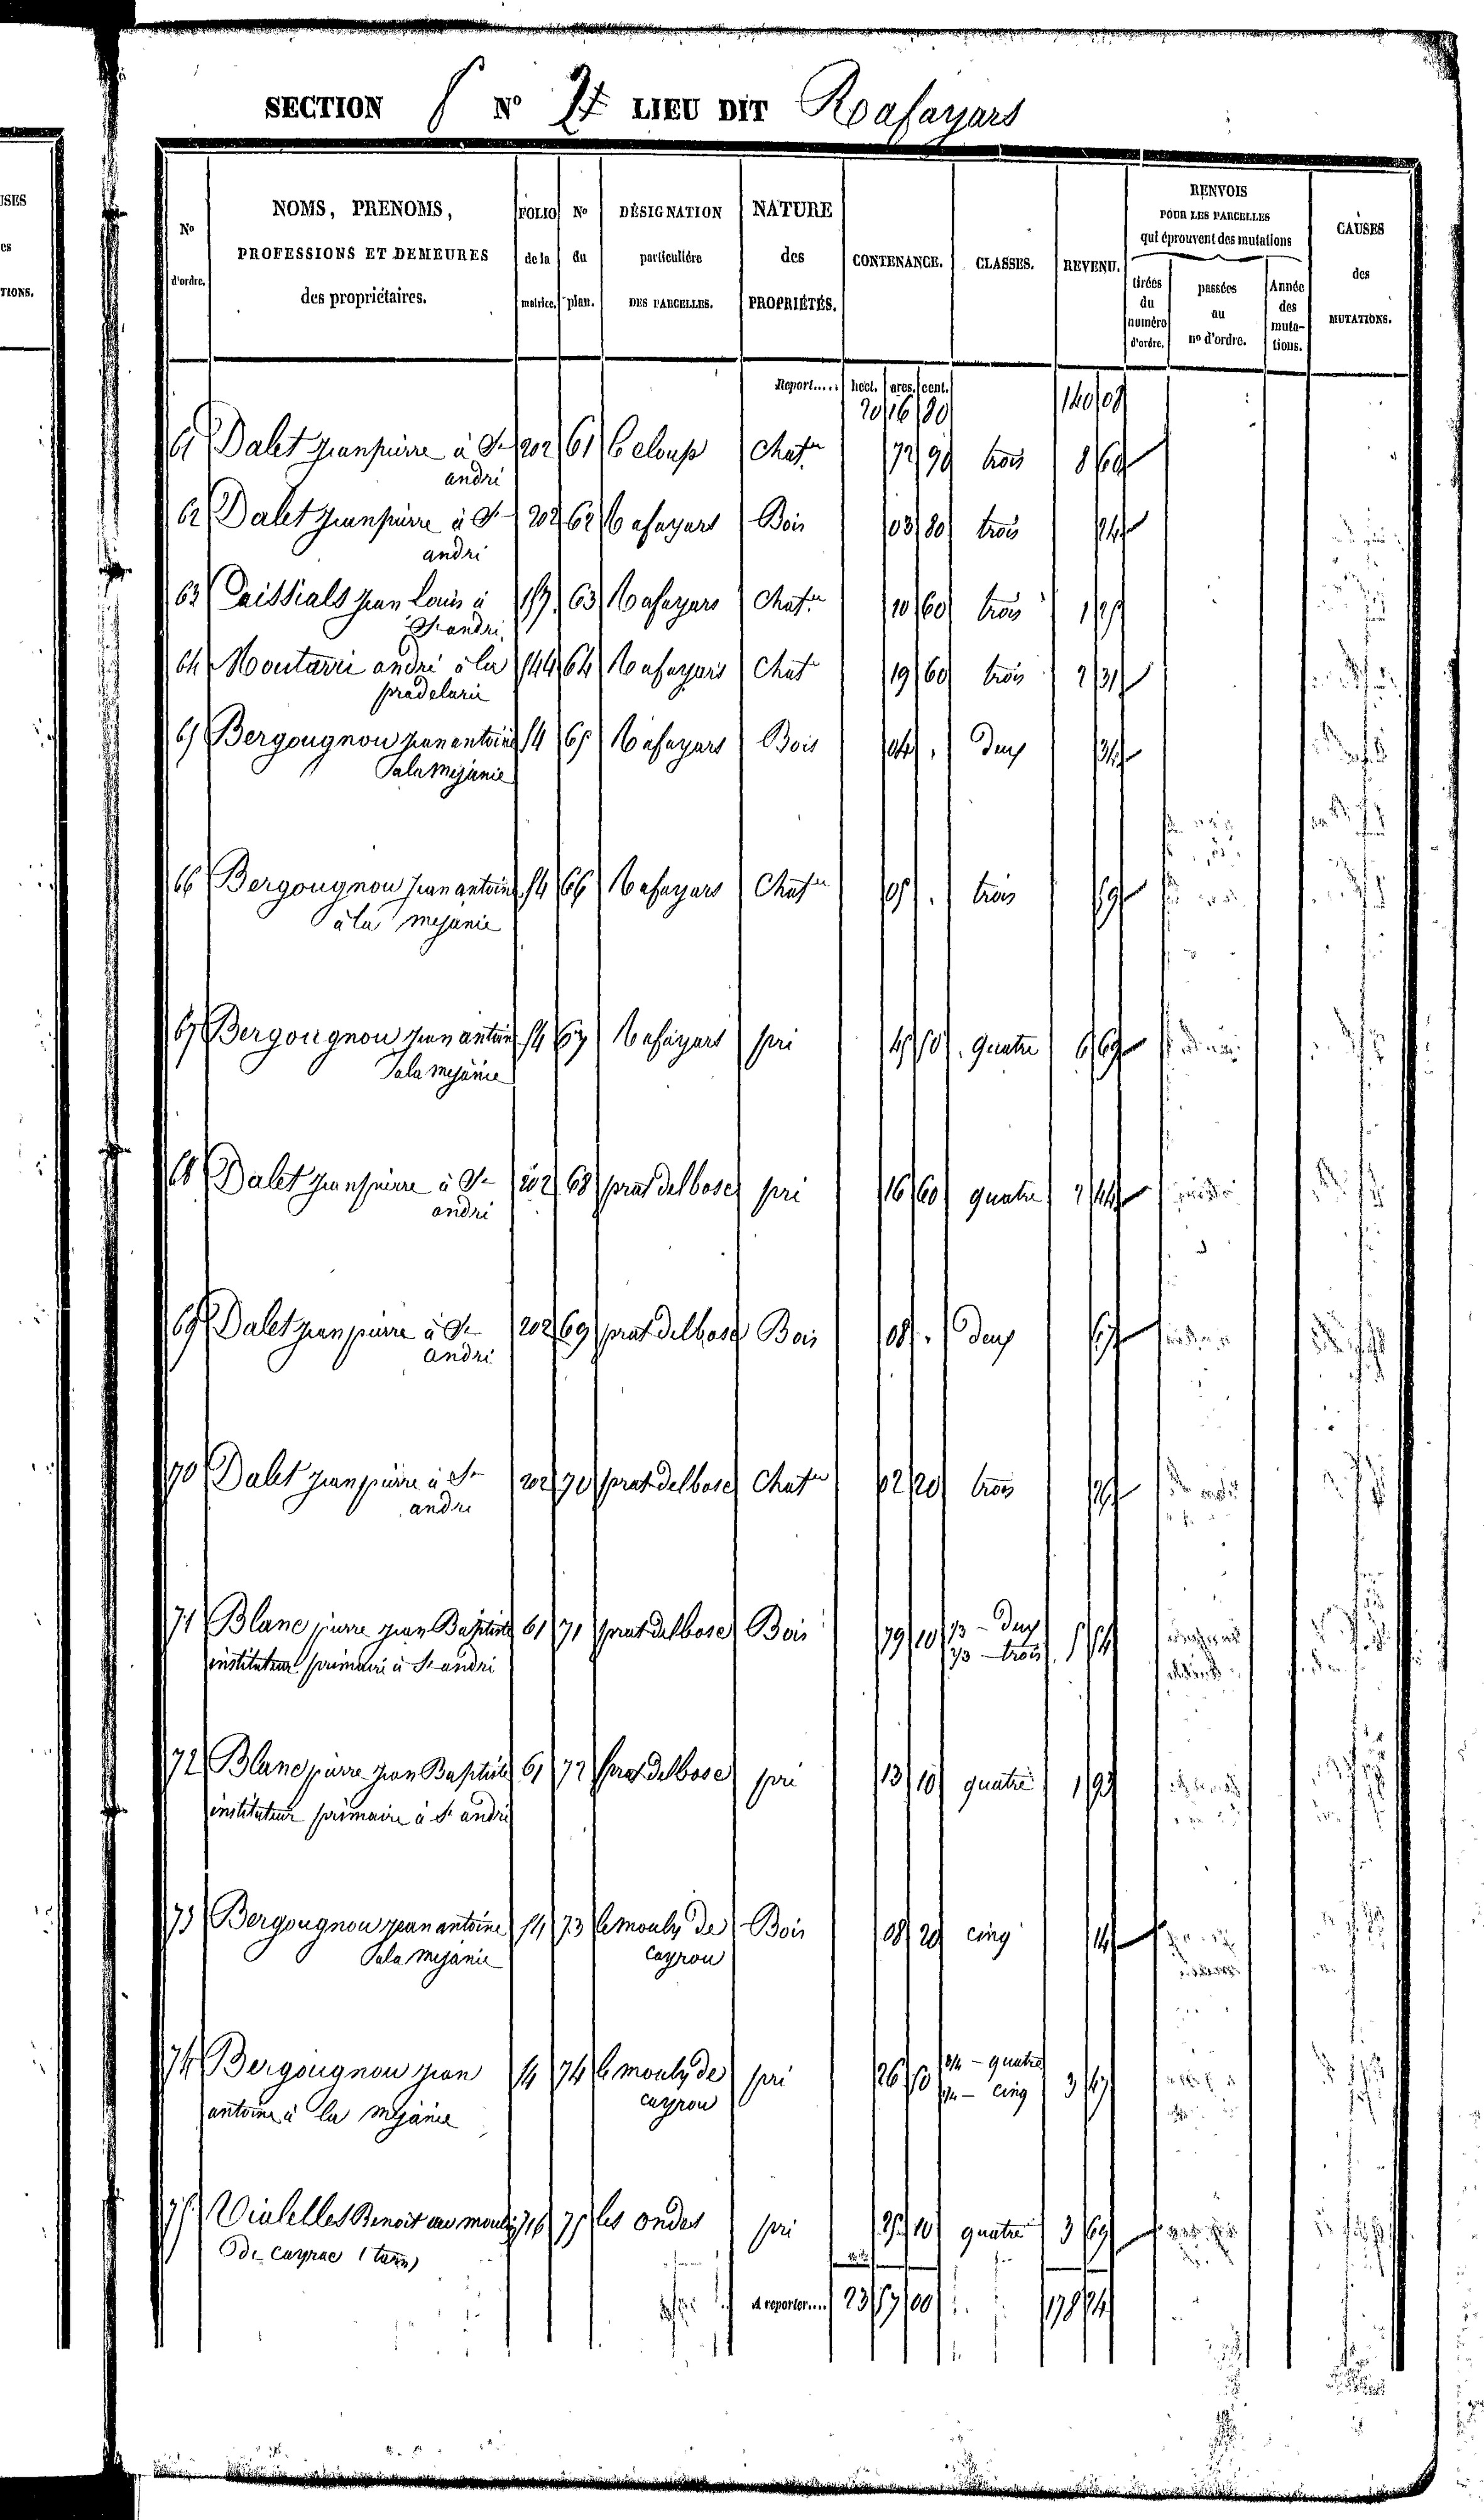 SECTION N° LIEU DIT Rafayars
N° d'ordre. NOMS, PRENOMS, PROFESSIONS ET DEMEURES des propriétaires. FOLIO de la matrice. N° du plan. DÉSIGNATION particulière DES PARCELLES. NATURE des PROPRIÉTÉS. CONTENANCE. CLASSES. REVENU. RENVOIS POUR LES PARCELLES qui éprouvent des mutations tirées du numéro d'ordre. passées au n° d'ordre. Année des mutations. CAUSES des MUTATIONS.
Report..... hect. ares. cent.
20 16 80 140 08
61 Dalet jean pierre à St 202 61 Chater 72 90 trois 8 60
andri
62 Dalet jean pierre à St 202 62 Rafayars Bois 03 80 trois 24
andri
63 Caissials jean louis à 63 Rafayars Chater 10 60 trois 1 25
St andri
64 Moutarri andré à la 144 64 Rafayars Chater 19 60 trois 2 31
pradelarie
65 Bergougnou jean antoine 14 65 Rafayars Bois 04 . deux 34
à la mejanie
66 Bergougnou jean antoine 14 66 Rafayars Chater 05 . trois 59
à la mejanie
67 Bergougnou jean antoine 14 67 Rafayars pri quatre 6 69
à la mejanie
68 Dalet jean pierre à St 202 68 prat delbosc pri 16 60 quatre 2 44
andri
69 Dalet jean pierre à St 202 69 prat delbosc Bois 08 . deux 67
andri
70 Dalet jean pierre à St 202 70 prat delbosc Chater 02 20 trois 26
andri
71 Blanc pierre jean Baptiste 61 71 prat delbosc Bois 79 10 1/3 - deux
institituteur primaire à St andri 2/3 - trois
72 Blanc pierre jean Baptiste 61 72 prat delbosc pri 13 10 quatre 1 93
instituteur primaire à St andri
73 Bergougnou jean antoine 14 73 le mouly de Bois 08 20 cinq 14
à la mejanie cayrou
74 Bergougnou jean 14 74 le mouly de pri 26 3/4 - quatre
antoine à la mejanie cayrou 1/4 - cinq
75 Vialelles Benoit au mouly 75 les ondes pri 25 10 quatre 3 69
de cayrac (tarn)
A reporter.... 23 57 00 178 24